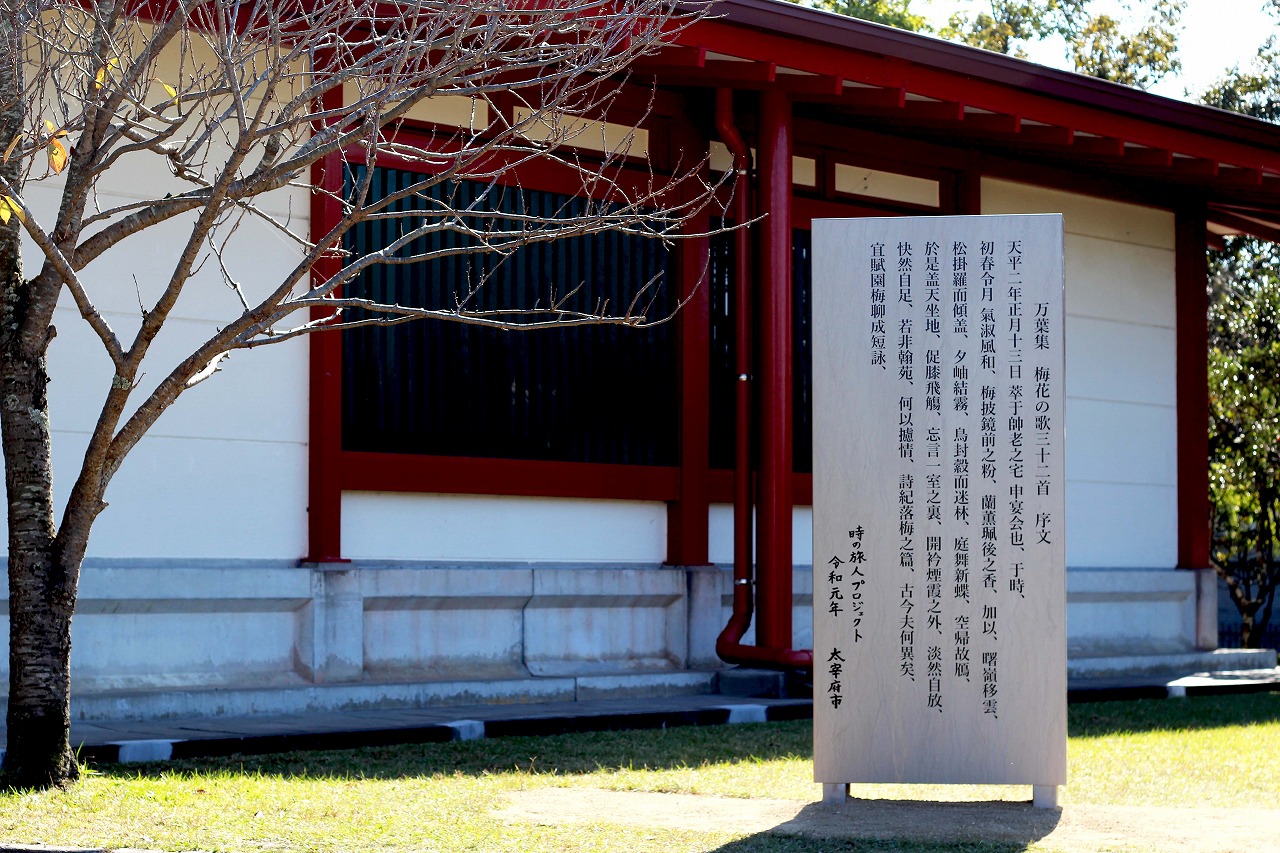 万葉集　梅花の歌三十二首　序文
天平二年正月十三日 萃于帥老之宅 申宴会也、于時、
初春令月 氣淑風和、梅披鏡前之粉、蘭薫珮後之香、加以、曙嶺移雲、
松掛羅而傾盖、夕岫結霧、鳥封縠而迷林、庭舞新蝶、空帰故鴈、
於是盖天坐地、促膝飛觴、忘言一室之裏、開衿煙霞之外、淡然自放、
快然自足、若非翰苑、何以攄情、詩紀落梅之篇、古今夫何異矣、
宜賦園梅聊成短詠、
時の旅人プロジェクト
令和元年　太宰府市